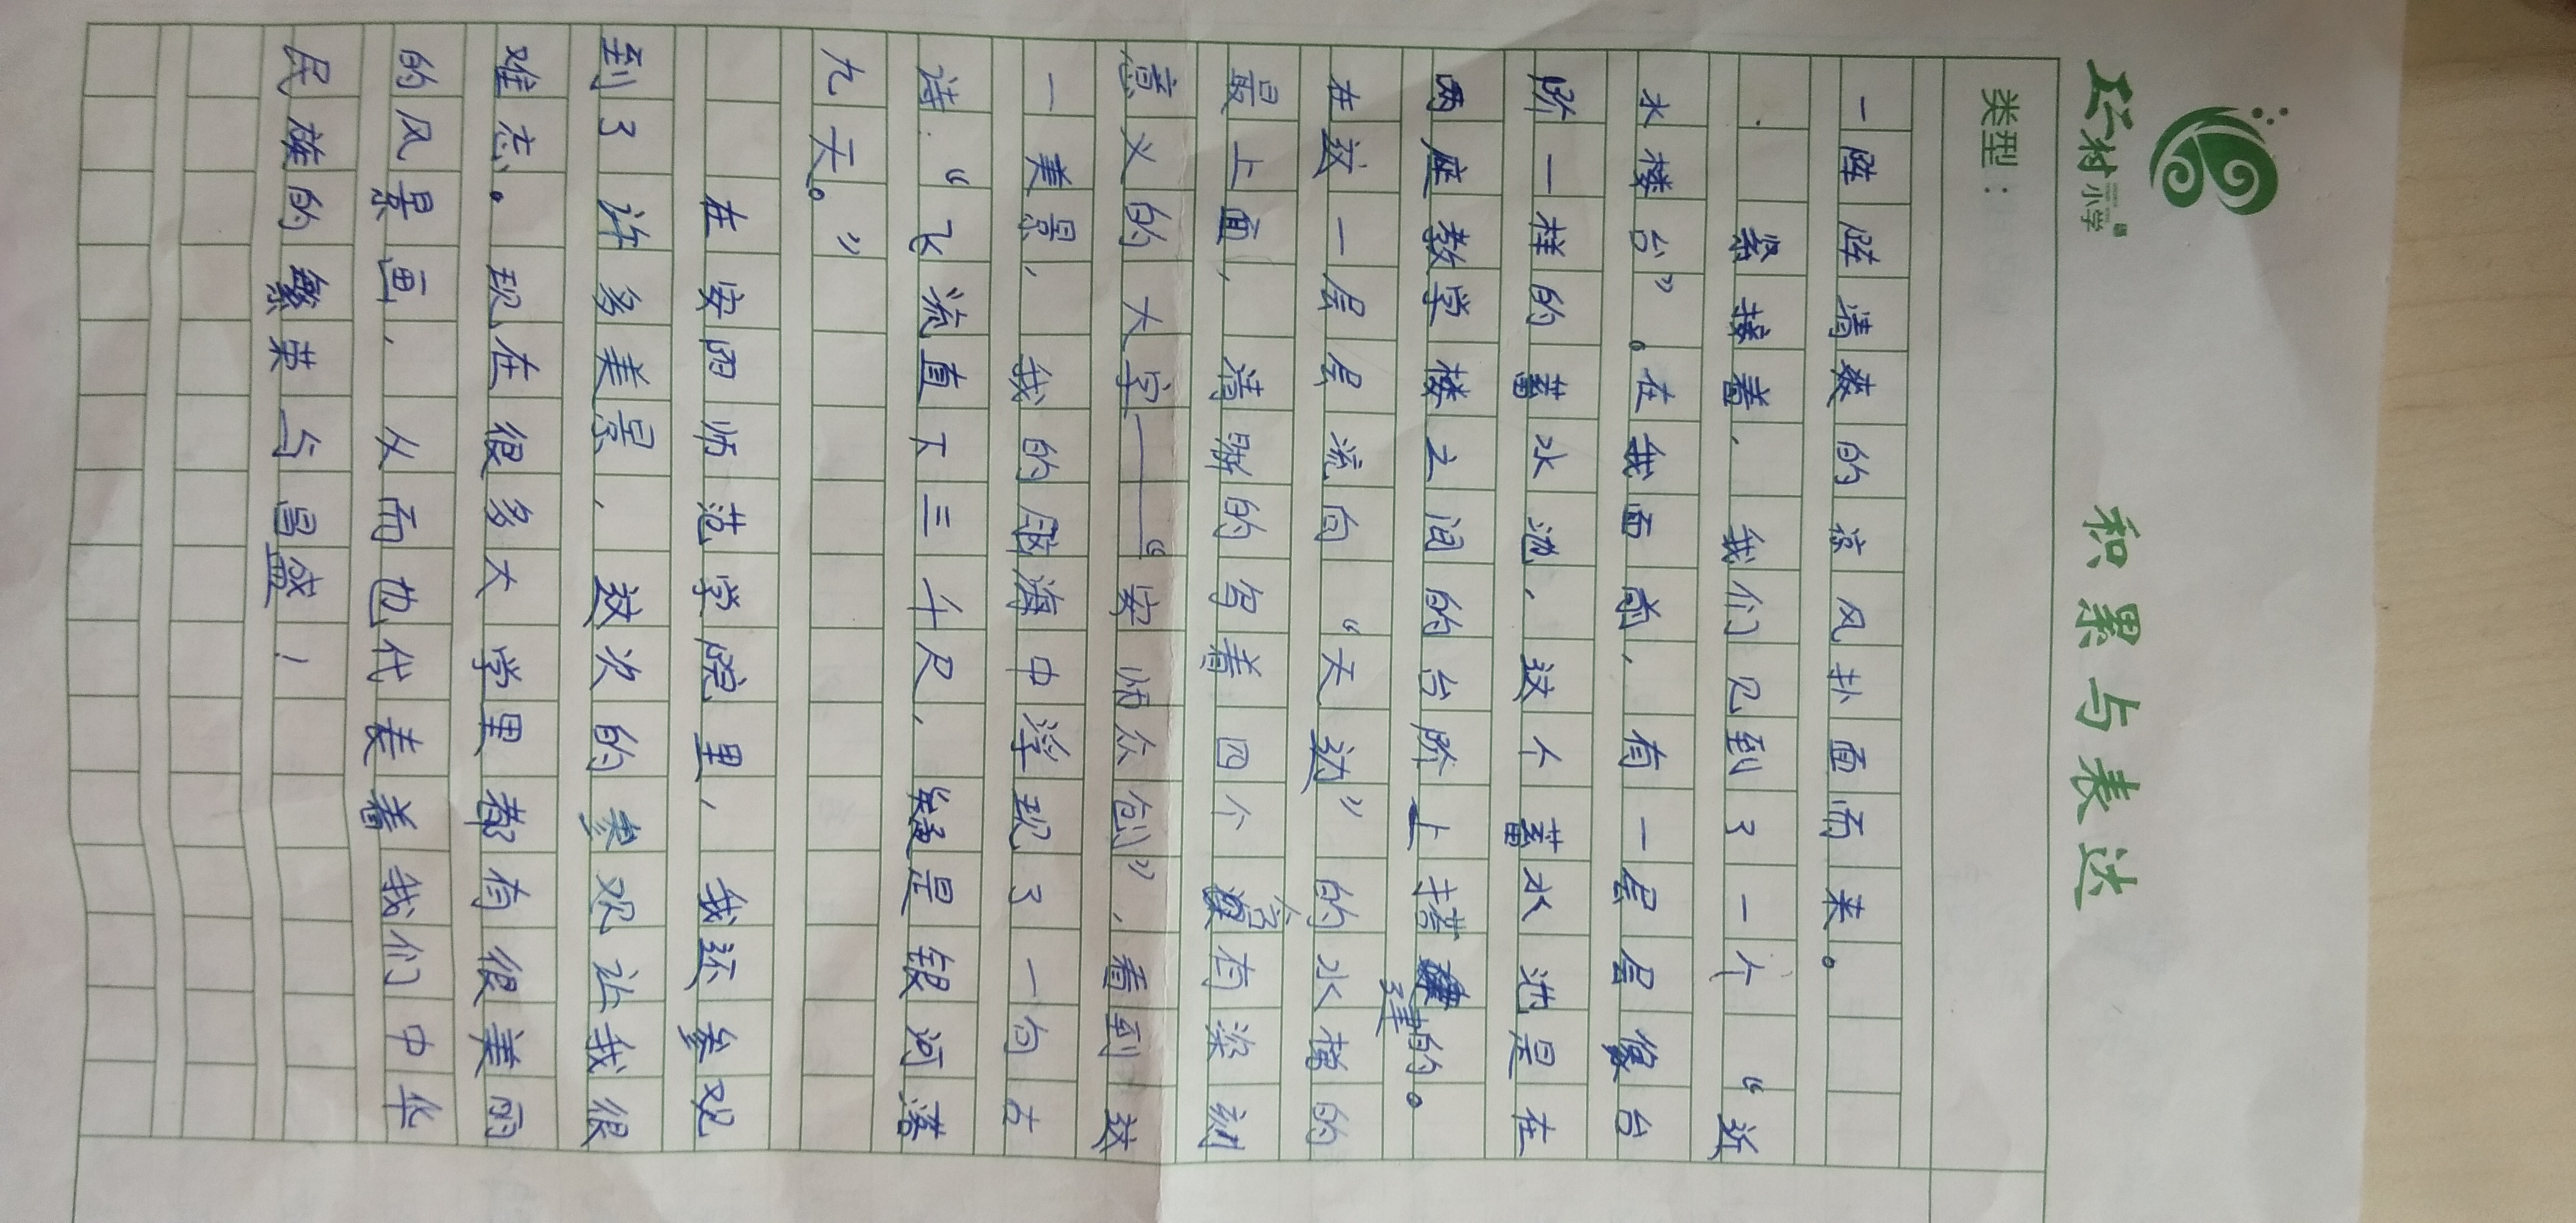 小学
积累与表达
类型：
一阵阵清爽的凉风扑面而来。
紧接着，我们见到了一个“近
水楼台”。在我面前，有一层层像台
阶一样的蓄水池，这个蓄水池是在
两座教学楼之间的台阶上搭建的。
在这一层层流向“天边”的水槽的
最上面，清晰的写着四个含有深刻
意义的大字——“安师众创”，看到这
一美景，我的脑海中浮现了一句古
诗：“飞流直下三千尺，疑是银河落
九天。”
在安阳师范学院里，我还参观
到了许多美景，这次的参观让我很
难忘。现在很多大学里都有很美丽
的风景画，从而也代表着我们中华
民族的繁荣与昌盛！